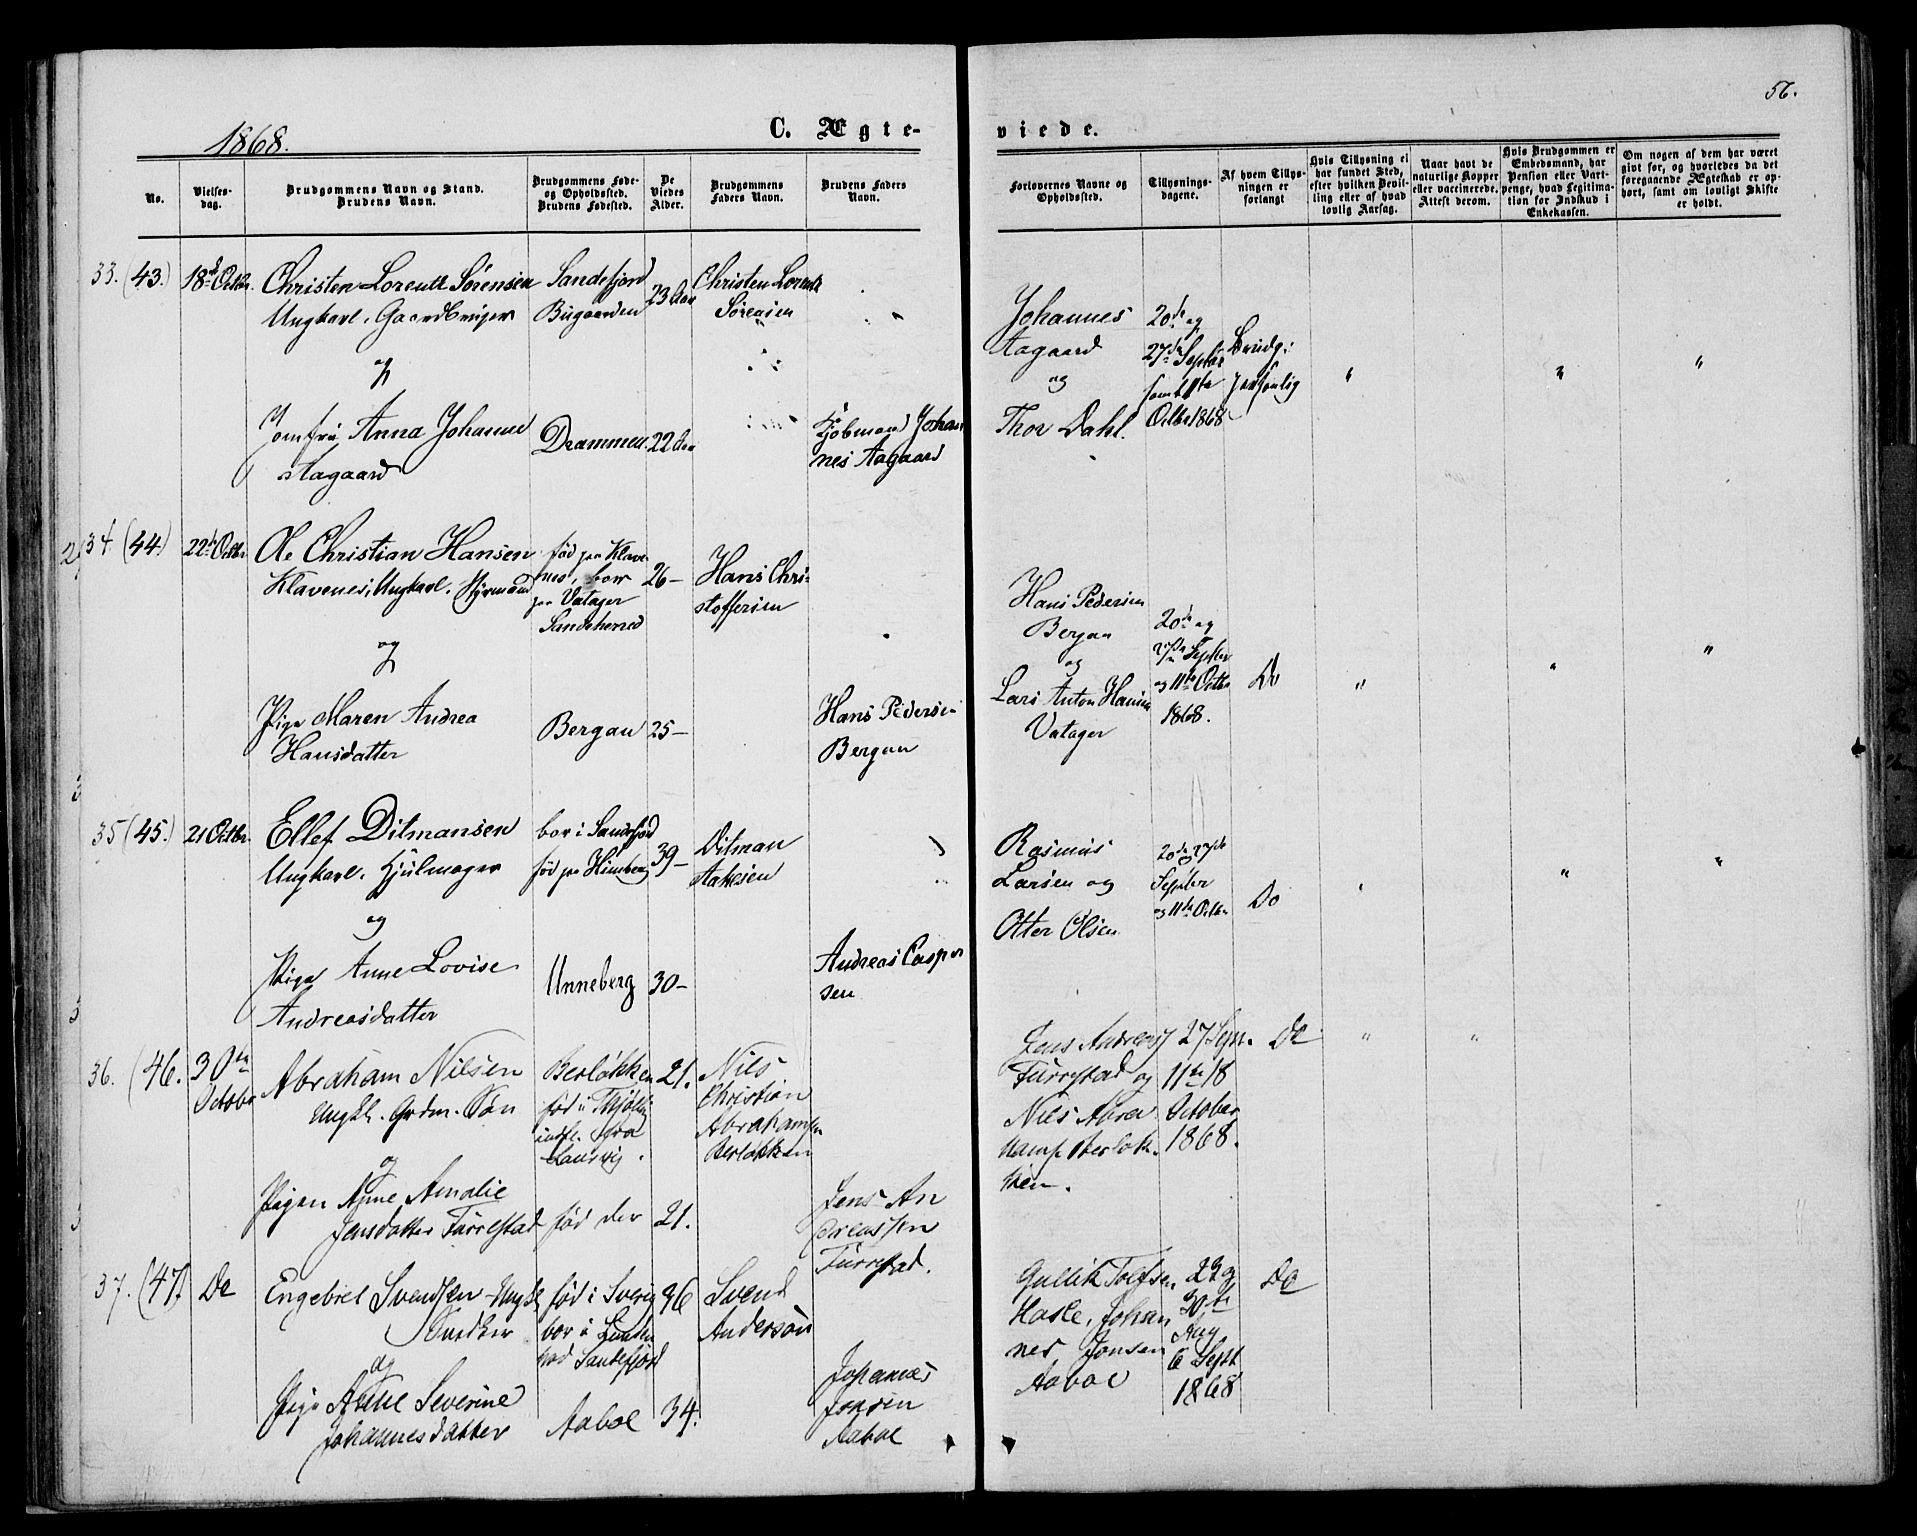 56.
1868.
C. Ægte-
viede.
No.
Vielses-
dag.
Brudgommens Navn og Stand.
Brudens Navn.
Brudgommens Føde-
og Opholdssted.
Brudens Fødested.
De
Viedes
Alder.
Brudgommens
Faders Navn.
Brudens Faders
Navn.
Forlovernes Navne og
Opholdssted.
Tillysnings-
dagene.
Af hvem Tillys-
ningen er
forlangt
Hvis Tillysning ei
har fundet Sted,
efter hvilken Bevil-
ling eller af hvad
lovlig Aarsag.
Naar havt de
naturlige Kopper
eller vaccinerede.
Attest derom.
Hvis Brudgommen er
Embedsmand, har
Pension eller Vart-
penge, hvad Legitima-
tion for Indskud i
Enkekassen.
Om nogen af dem har været
givt for, og hvorledes da det
foregaaende Ægteskab er op-
hørt, samt om lovligt Skifte
er holdt.
33. (43.)
18de Octbr.
Christen Lorentz Sørensen
Ungkarl. Gaardbruger
og
Jomfru Anna Johanne
Aagaard
Sandefjord
Bugaarden
Drammen
23 Aar
22 Aar
Christen Lorentz
Sørensen
Kjøbmand Johan
nes Aagaard
Johannes
Aagaard
og
Thor Dahl.
20de og
27de Septbr
samt 11te
Octbr 1868
Brudg:
personlig
34. (44.)
22de Octbr
Ole Christian Hansen
Klavenes, Ungkarl. Styrmand
og
Pige Maren Andrea
Hansdatter
født paa Klave-
nes, bor
paa Vatager
Sandeherred
Bergan
26-
25-
Hans Chri-
stoffersen
Hans Pedersen
Bergan
Hans Pedersen
Bergan
og
Lars Anton Hansen
Vatager
20de og
27de Septbr
og 11te Octbr
1868.
Do
35 (45.)
21 Octbr.
Ellef Ditmansen
Ungkarl. Hjulmager
og
Pige Anne Lovise
Andreasdatter
bor i Sandefjord
fød paa Himberg
Unneberg
39-
30-
Ditman
Aakesen
Andreas Casper
sen
Rasmus
Larsen og
Otter Olsen
20de og 27de
Septbr
og 11te Octbr
Do
36. (46.
30te
Octobr
Abraham Nilsen
Ungkl. Grdm. Søn
og
Pigen Anne Amalie
Jensdatter Furrestad
Berløkken
fød i Thjølling
fra
Laurvig.
fød der
21.
21.
Nils
Christian
Abrahamsen
Berløkken
Jens An
dreassen
Furrestad.
Jens Andreas
Furrestad og
Nils Abra
hams Berløk-
ken.
27 Sept.
11te 18
October
1868.
Do
37. (47)
Do
Engebret Svendsen Ungkl
Snedker
og
Pige Anne Severine
Johannesdatter
fød i Sverig
bor i Lunden
ved Sandefjord
Aaboe
36
34.
Svend
Anderson
Johannes
Jonsen
Aaboe
Gullik Tolfsen
Hasle, Johan
nes Jonsen
Aaboe
22 og
30te
Aug
6 Sept
1868
Do